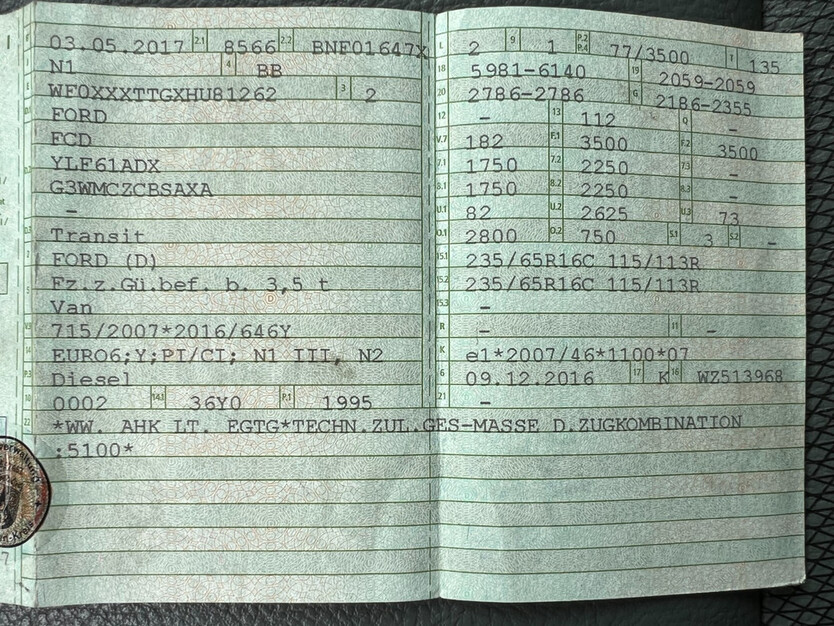 03.05.2017 2.1 8566 2.2 BNF01647X
N1 4 BB
WF0XXXTTGXHU81262 3 2
FORD
FCD
YLF61ADX
G3WMCZCBSAXA
–
Transit
FORD (D)
Fz.z.Gü.bef. b. 3,5 t
Van
715/2007*2016/646Y
EURO6;Y;PI/CI; N1 III, N2
Diesel
0002 14.1 36Y0 P.1 1995
*WW. AHK LT. EGTG*TECHN.ZUL.GES-MASSE D.ZUGKOMBINATION
:5100*
L 2 9 1 P.2 P.4 77/3500 T 135
18 5981-6140 19 2059-2059
20 2786-2786 G 2186-2355
12 – 13 112 Q –
V.7 182 F.1 3500 F.2 3500
7.1 1750 7.2 2250 7.3 –
8.1 1750 8.2 2250 8.3 –
U.1 82 U.2 2625 U.3 73
O.1 2800 O.2 750 S.1 3 S.2 –
15.1 235/65R16C 115/113R
15.2 235/65R16C 115/113R
15.3 –
R – 11 –
K e1*2007/46*1100*07
6 09.12.2016 17 K 16 WZ513968
21 –